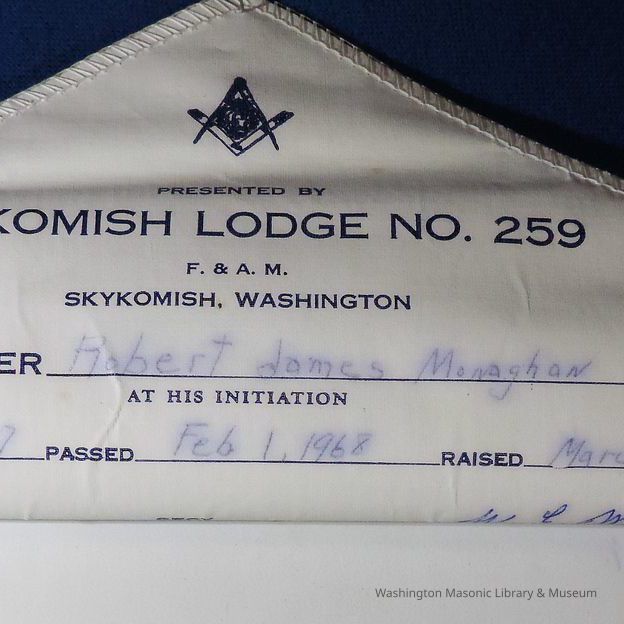 PRESENTED BY
KOMISH LODGE NO. 259
F. & A. M.
SKYKOMISH, WASHINGTON
ER Robert James Monaghan
AT HIS INITIATION
7 PASSED Feb 1, 1968 RAISED Marc
Washington Masonic Library & Museum